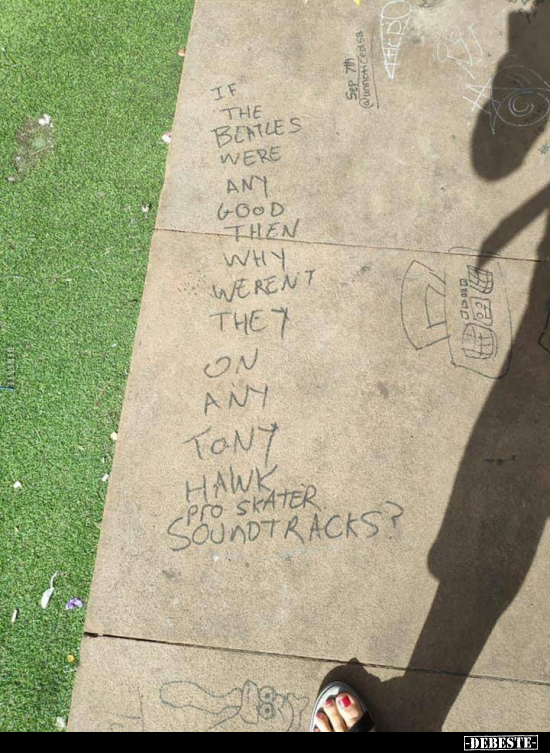 IF
THE
BEATLES
WERE
ANY
GOOD
THEN
WHY
WEREN'T
THEY
ON
ANY
TONY
HAWK
PrO SKATER
SOUNDTRACKS?
Sep 7th
-DEBESTE-